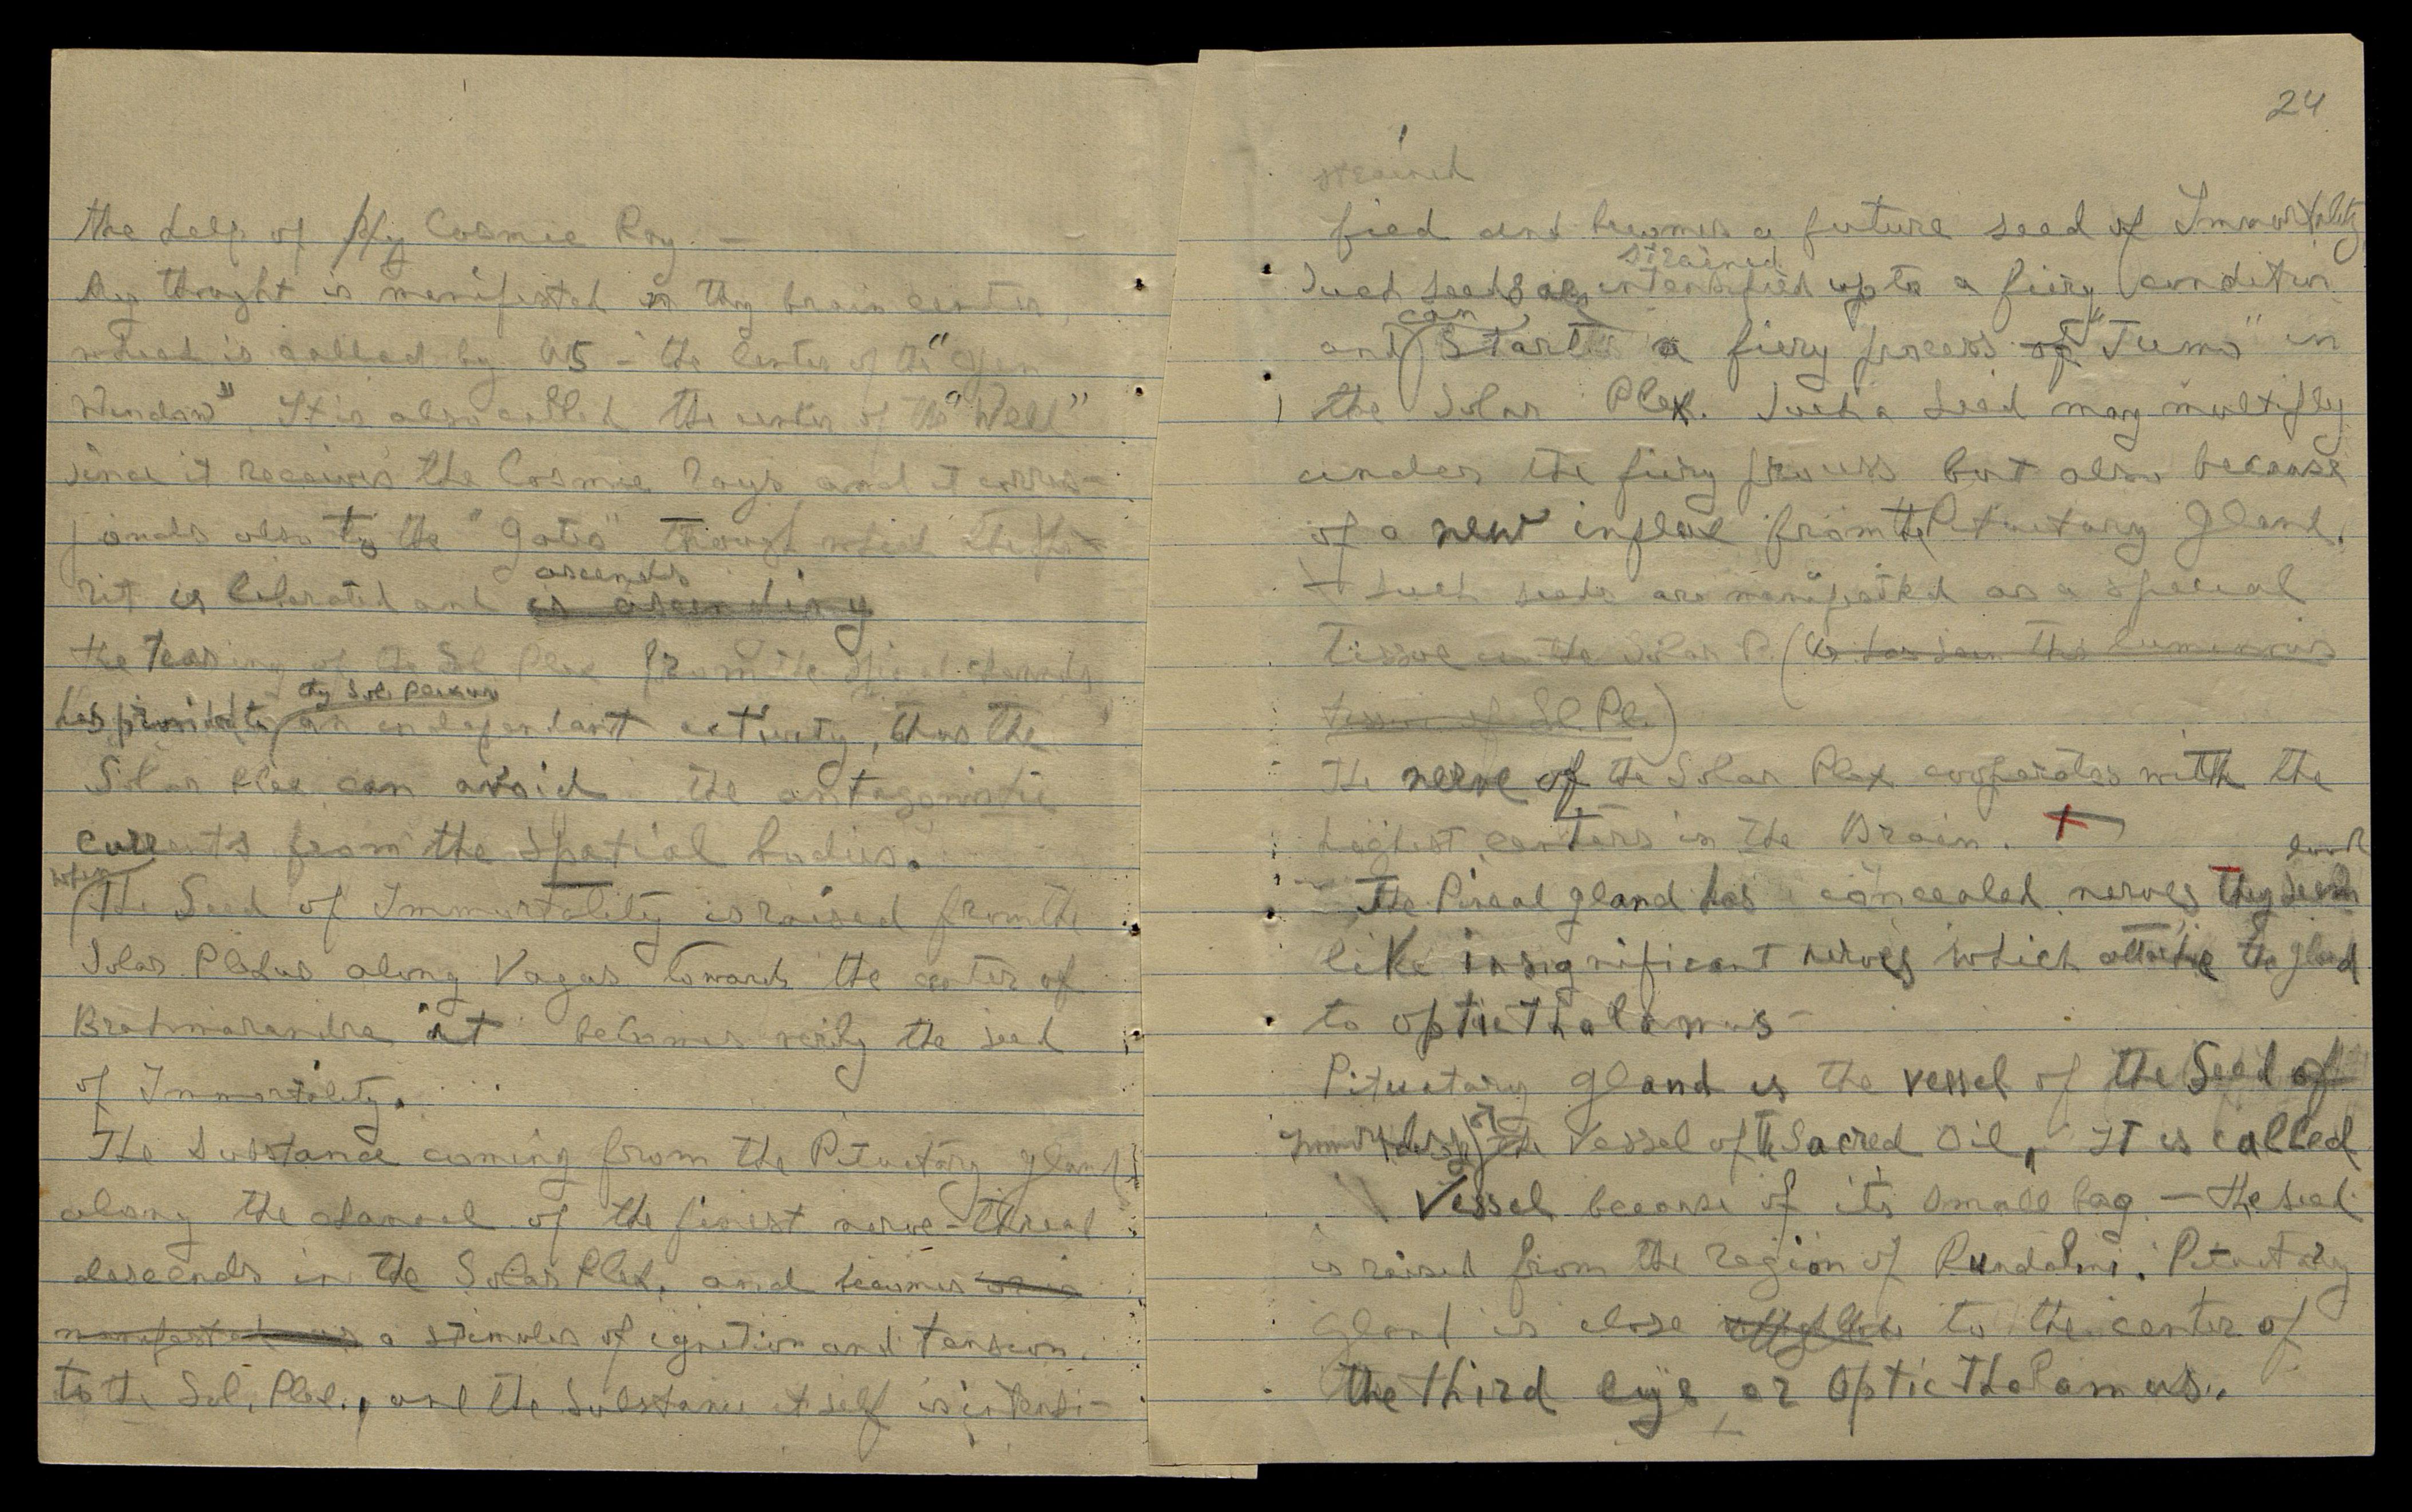 the help of My Cosmic Ray. —
My thought is manifested in thy brain center,
which is called by US - the center of the "Open
Window". It is also called the center of the "Well"
since it receives the Cosmic Rays and it corres-
ponds also to the "Gates" through which the Spi-
ascends
rit is liberated and is ascending
the tearing of the Sol Plex from the spinal
thy Sol. Plexus
has provided to an independant activity, thus the
Solar Plex can avoid the antagonistic
currents from the Spatial bodies.
when
The Seed of Immortality is raised from the
Solar Plexus along Vagus towards the center of
Brahmarandra it becomes verily the seed
of Immortality.
The Substance coming from the Pituetary gland
along the channel of the finest nerve-thread
descends in the Solar Plex. and becomes or is
manifested as a stimulus of ignition and tension.
to the Sol. Plex., and the Substance itself is intensi-
24
strained
fied and becomes a future seed of Immortality
strained
Such seeds are intensified up to a fiery condition
can
and start a fiery process of "Tumo" in
the Solar Plex. Such a Seed may multiply
under the fiery process but also because
of a new influx from the Pituetary Gland.
Such seeds are manifested as a special
tissue in the Solar P. (Ur. has seen this luminous
tissue of Sol. Pl.)
The nerve of the Solar Plex cooperates with the
highest centers in the Brain.
look
The Pineal gland has concealed nerves they seem
like insignificant nerves which attache the gland
to optic Thalamus -
Pituetary gland is the vessel of the Seed of
Immortality or the Vessel of the Sacred Oil, It is called
Vessel because of its small bag — the seed
is raised from the region of Kundalini. Pituetary
Gland is close to the center of
the third eye or Optic Thalamus.